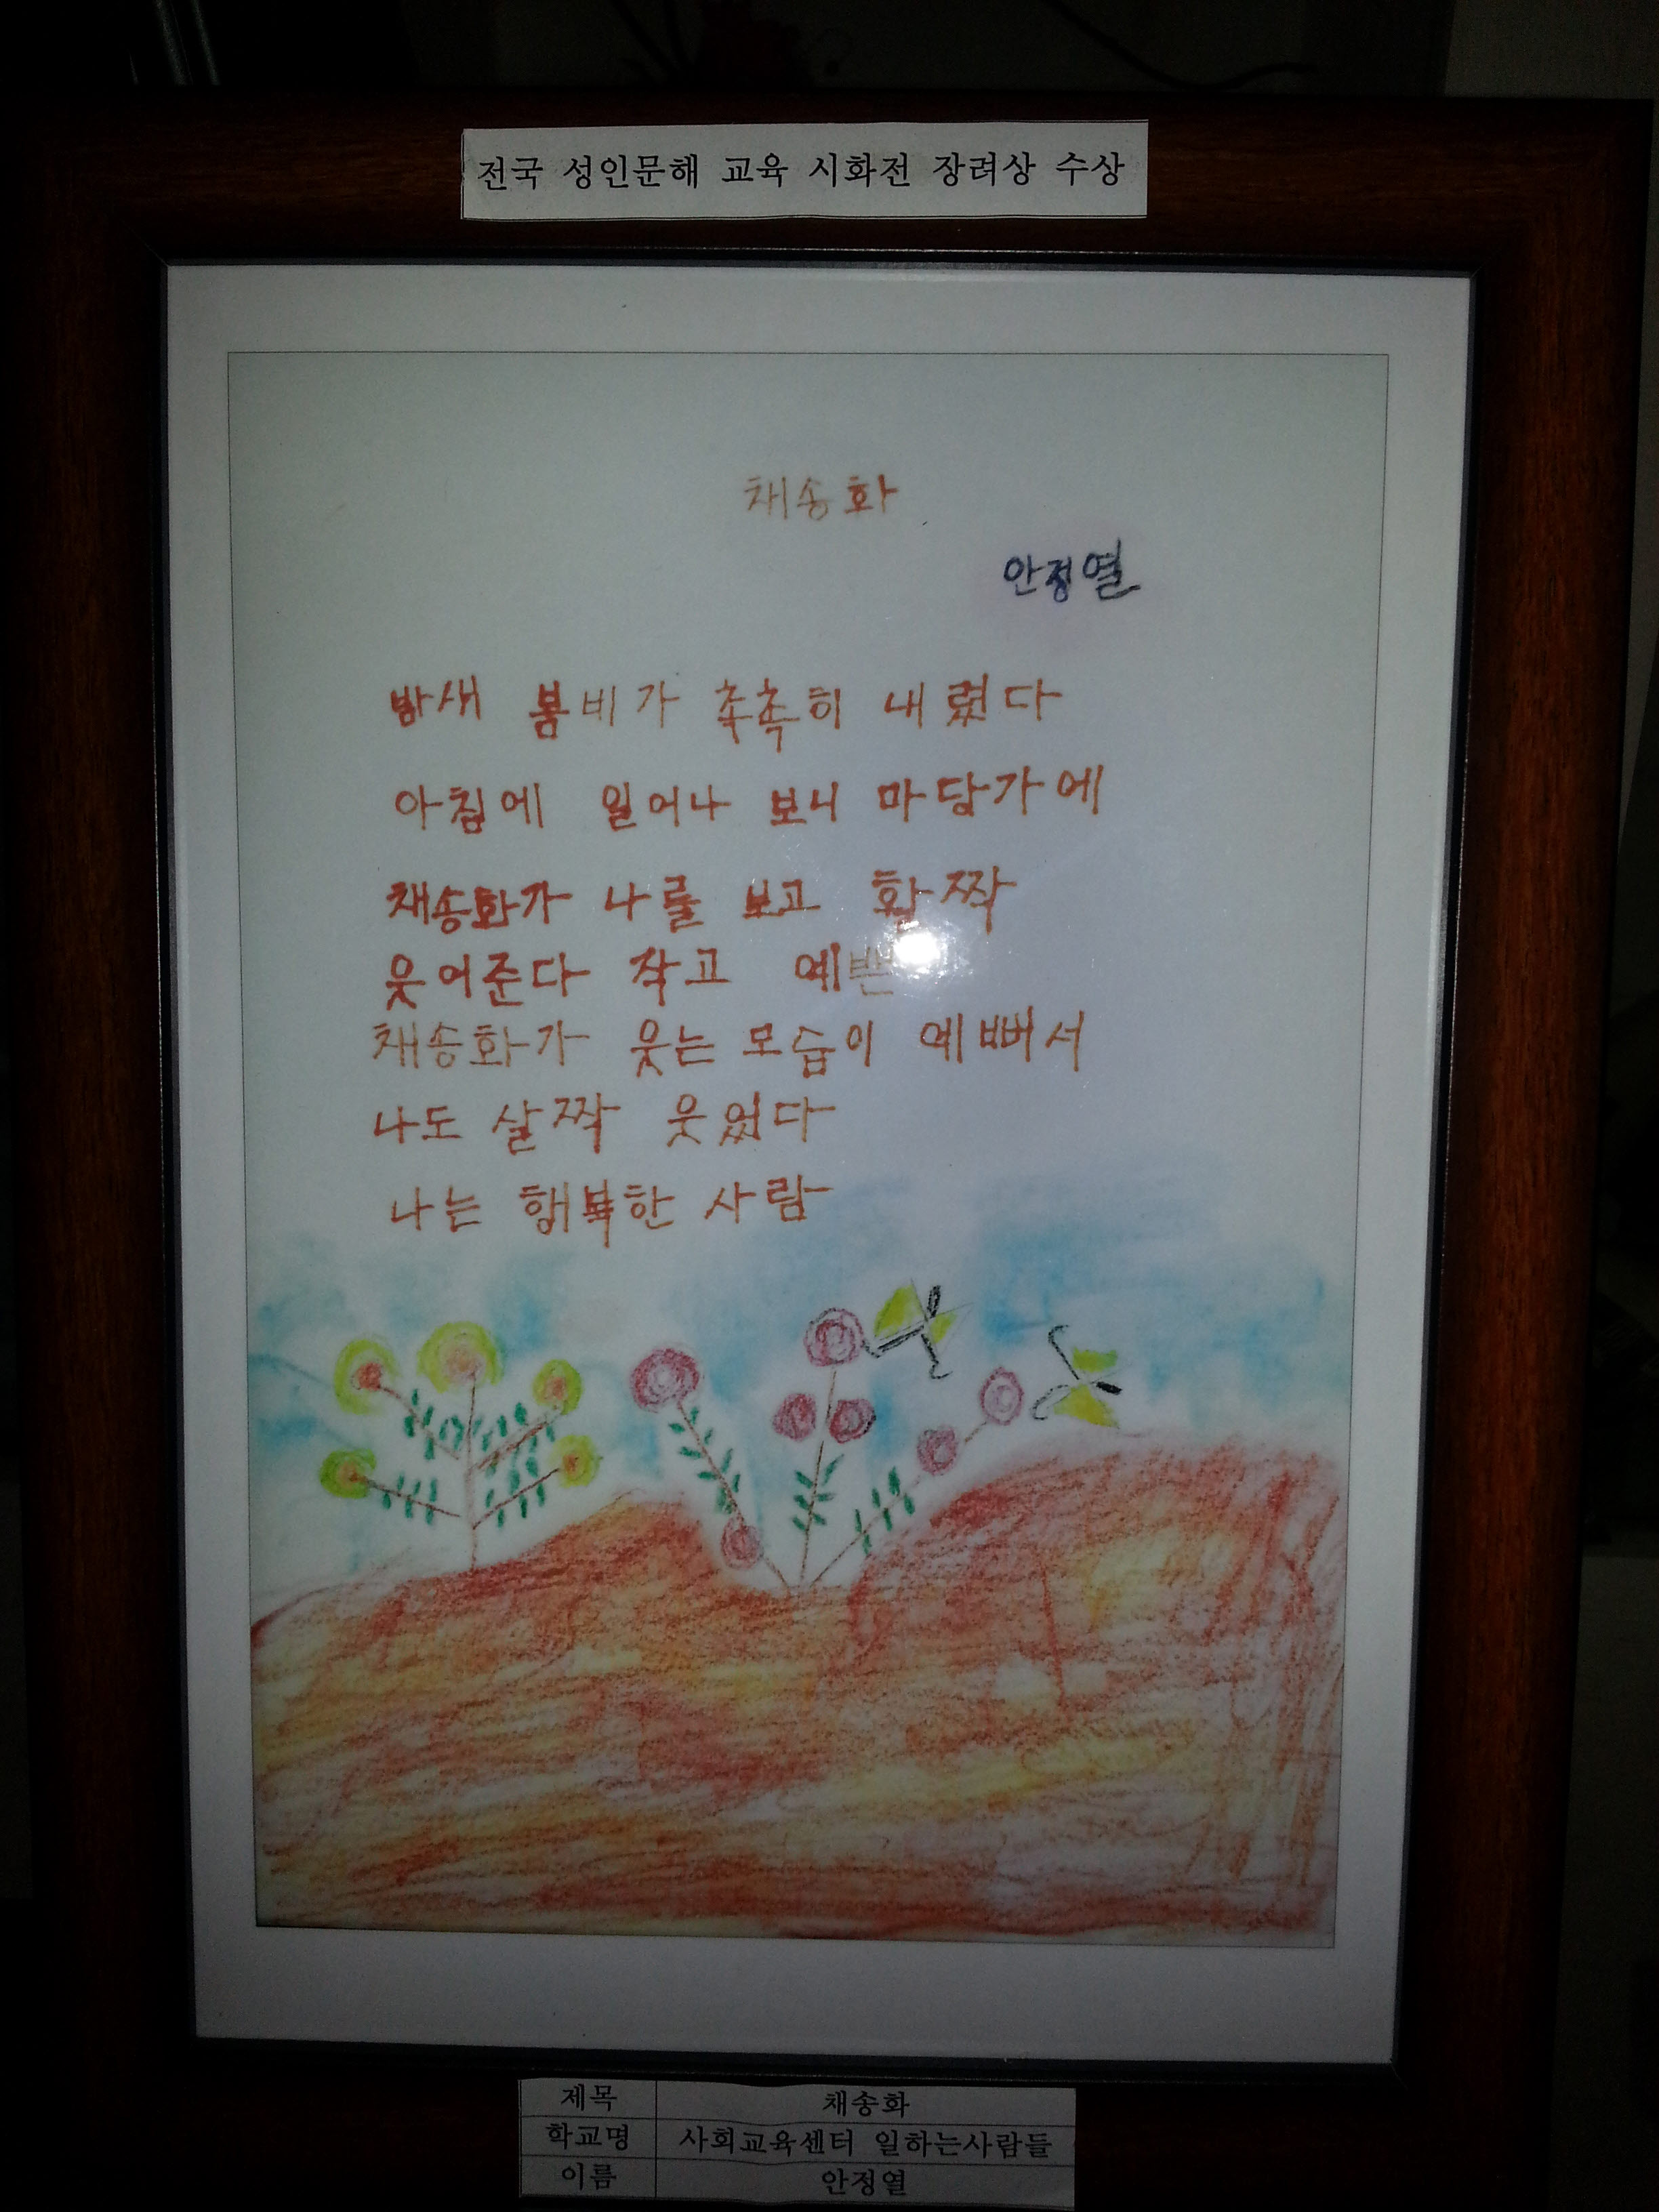 전국 성인문해 교육 시화전 장려상 수상
채송화
안정열
밤새 봄비가 촉촉히 내렸다
아침에 일어나 보니 마당가에
채송화가 나를 보고 활짝
웃어준다 작고 예쁜
채송화가 웃는 모습이 예뻐서
나도 살짝 웃었다
나는 행복한 사람
제목 채송화
학교명 사회교육센터 일하는사람들
이름 안정열